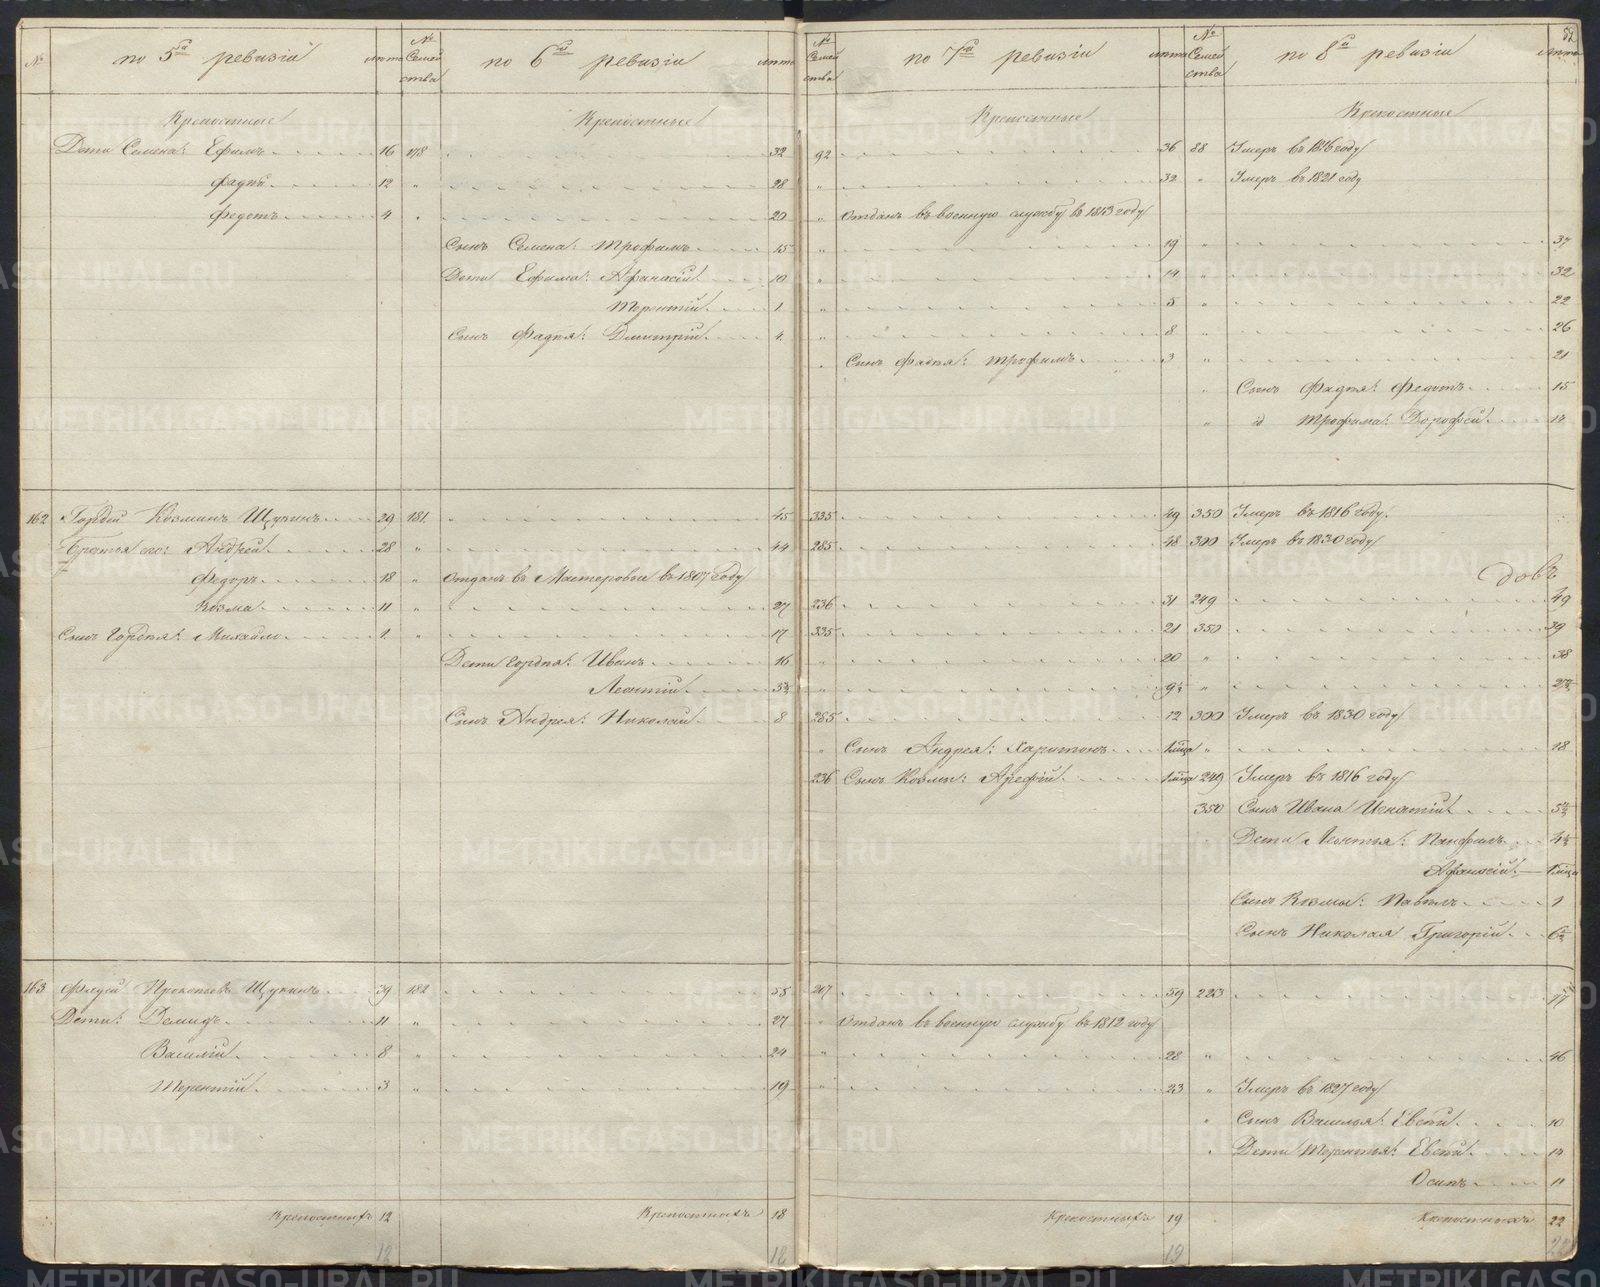 № по 5й ревизіи лѣта № Семейства по 6й ревизіи лѣта № Семейства по 7й ревизіи лѣта № Семейства по 8й ревизіи лѣта
Крепостные Крепостные Крепостные Крепостные
Дети Семена: Ефимъ 16 178 32 92 36 88 Умеръ въ 1816 году
Фадѣй 12 „ 28 „ 32 „ Умеръ въ 1821 году
Федотъ 4 „ 20 „ Отданъ въ военную службу въ 1813 году
Сынъ Семена: Трофимъ 15 „ 19 „ 37
Дети Ефима: Афанасій 10 „ 14 „ 32
Терентій 1 „ 5 „ 22
Сынъ Фадѣя: Дмитрій 4 „ 8 „ 26
„ Сынъ Фадѣя: Трофимъ 3 „ 21
„ Сынъ Фадѣя: Федотъ 15
„ id Трофима: Дорофей 14
162 Гордей Козминъ Щукинъ 29 181 45 335 49 350 Умеръ въ 1816 году
Братья его: Андрей 28 „ 44 285 48 300 Умеръ въ 1830 году
Федоръ 18 „ Отданъ въ Мастеровые въ 1807 году
Козма 11 „ 27 236 31 249 49
Сынъ Гордѣя: Михайло 1 „ 17 335 21 350 39
Дети Гордѣя: Иванъ 16 „ 20 „ 38
Леонтій 5½ „ 9½ „
Сынъ Андрея: Николай 8 285 12 300 Умеръ въ 1830 году
„ Сынъ Андрея: Харитонъ „ 18
236 Сынъ Козмы: Арефій 249 Умеръ въ 1816 году
350 Сынъ Ивана Игнатій
Дети Леонтья: Панфилъ
Афанасій
Сынъ Козмы: Павелъ 1
Сынъ Николая Григорій
163 Фадей Прокопьевъ Щукинъ 39 182 55 217 59 223 77
Дети: Демидъ 11 „ 27 „ Отданъ въ военную службу въ 1812 году
Василій 8 „ 24 „ 28 „ 46
Терентій 3 „ 19 „ 23 „ Умеръ въ 1827 году
„ Сынъ Василья: Евсей 10
„ Дети Терентья: Евсей 14
Осипъ 11
Крепостныхъ 12 Крепостныхъ 18 Крепостныхъ 19 Крепостныхъ 22
12 18 19 22
METRIKI.GASO-URAL.RU